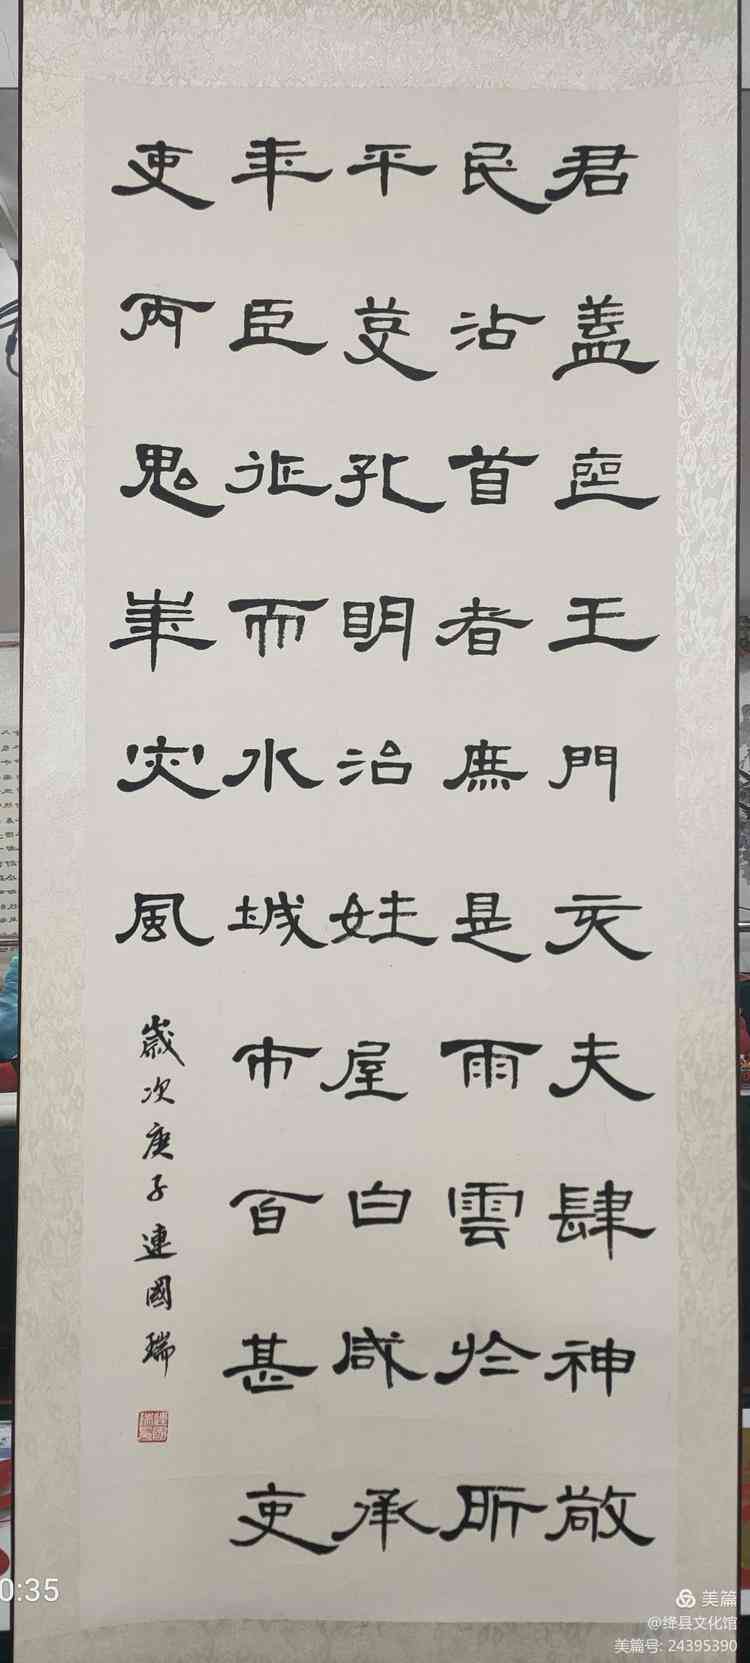 君蓋王門亥夫肆神敞
民沾首者庶是雨雲於昕
平孔明治娃屋白咸承
臣征而水城市百甚吏
吏丙鬼風
歲次庚子連國瑞
0:35
美篇
@绛县文化馆
美篇号: 24395390